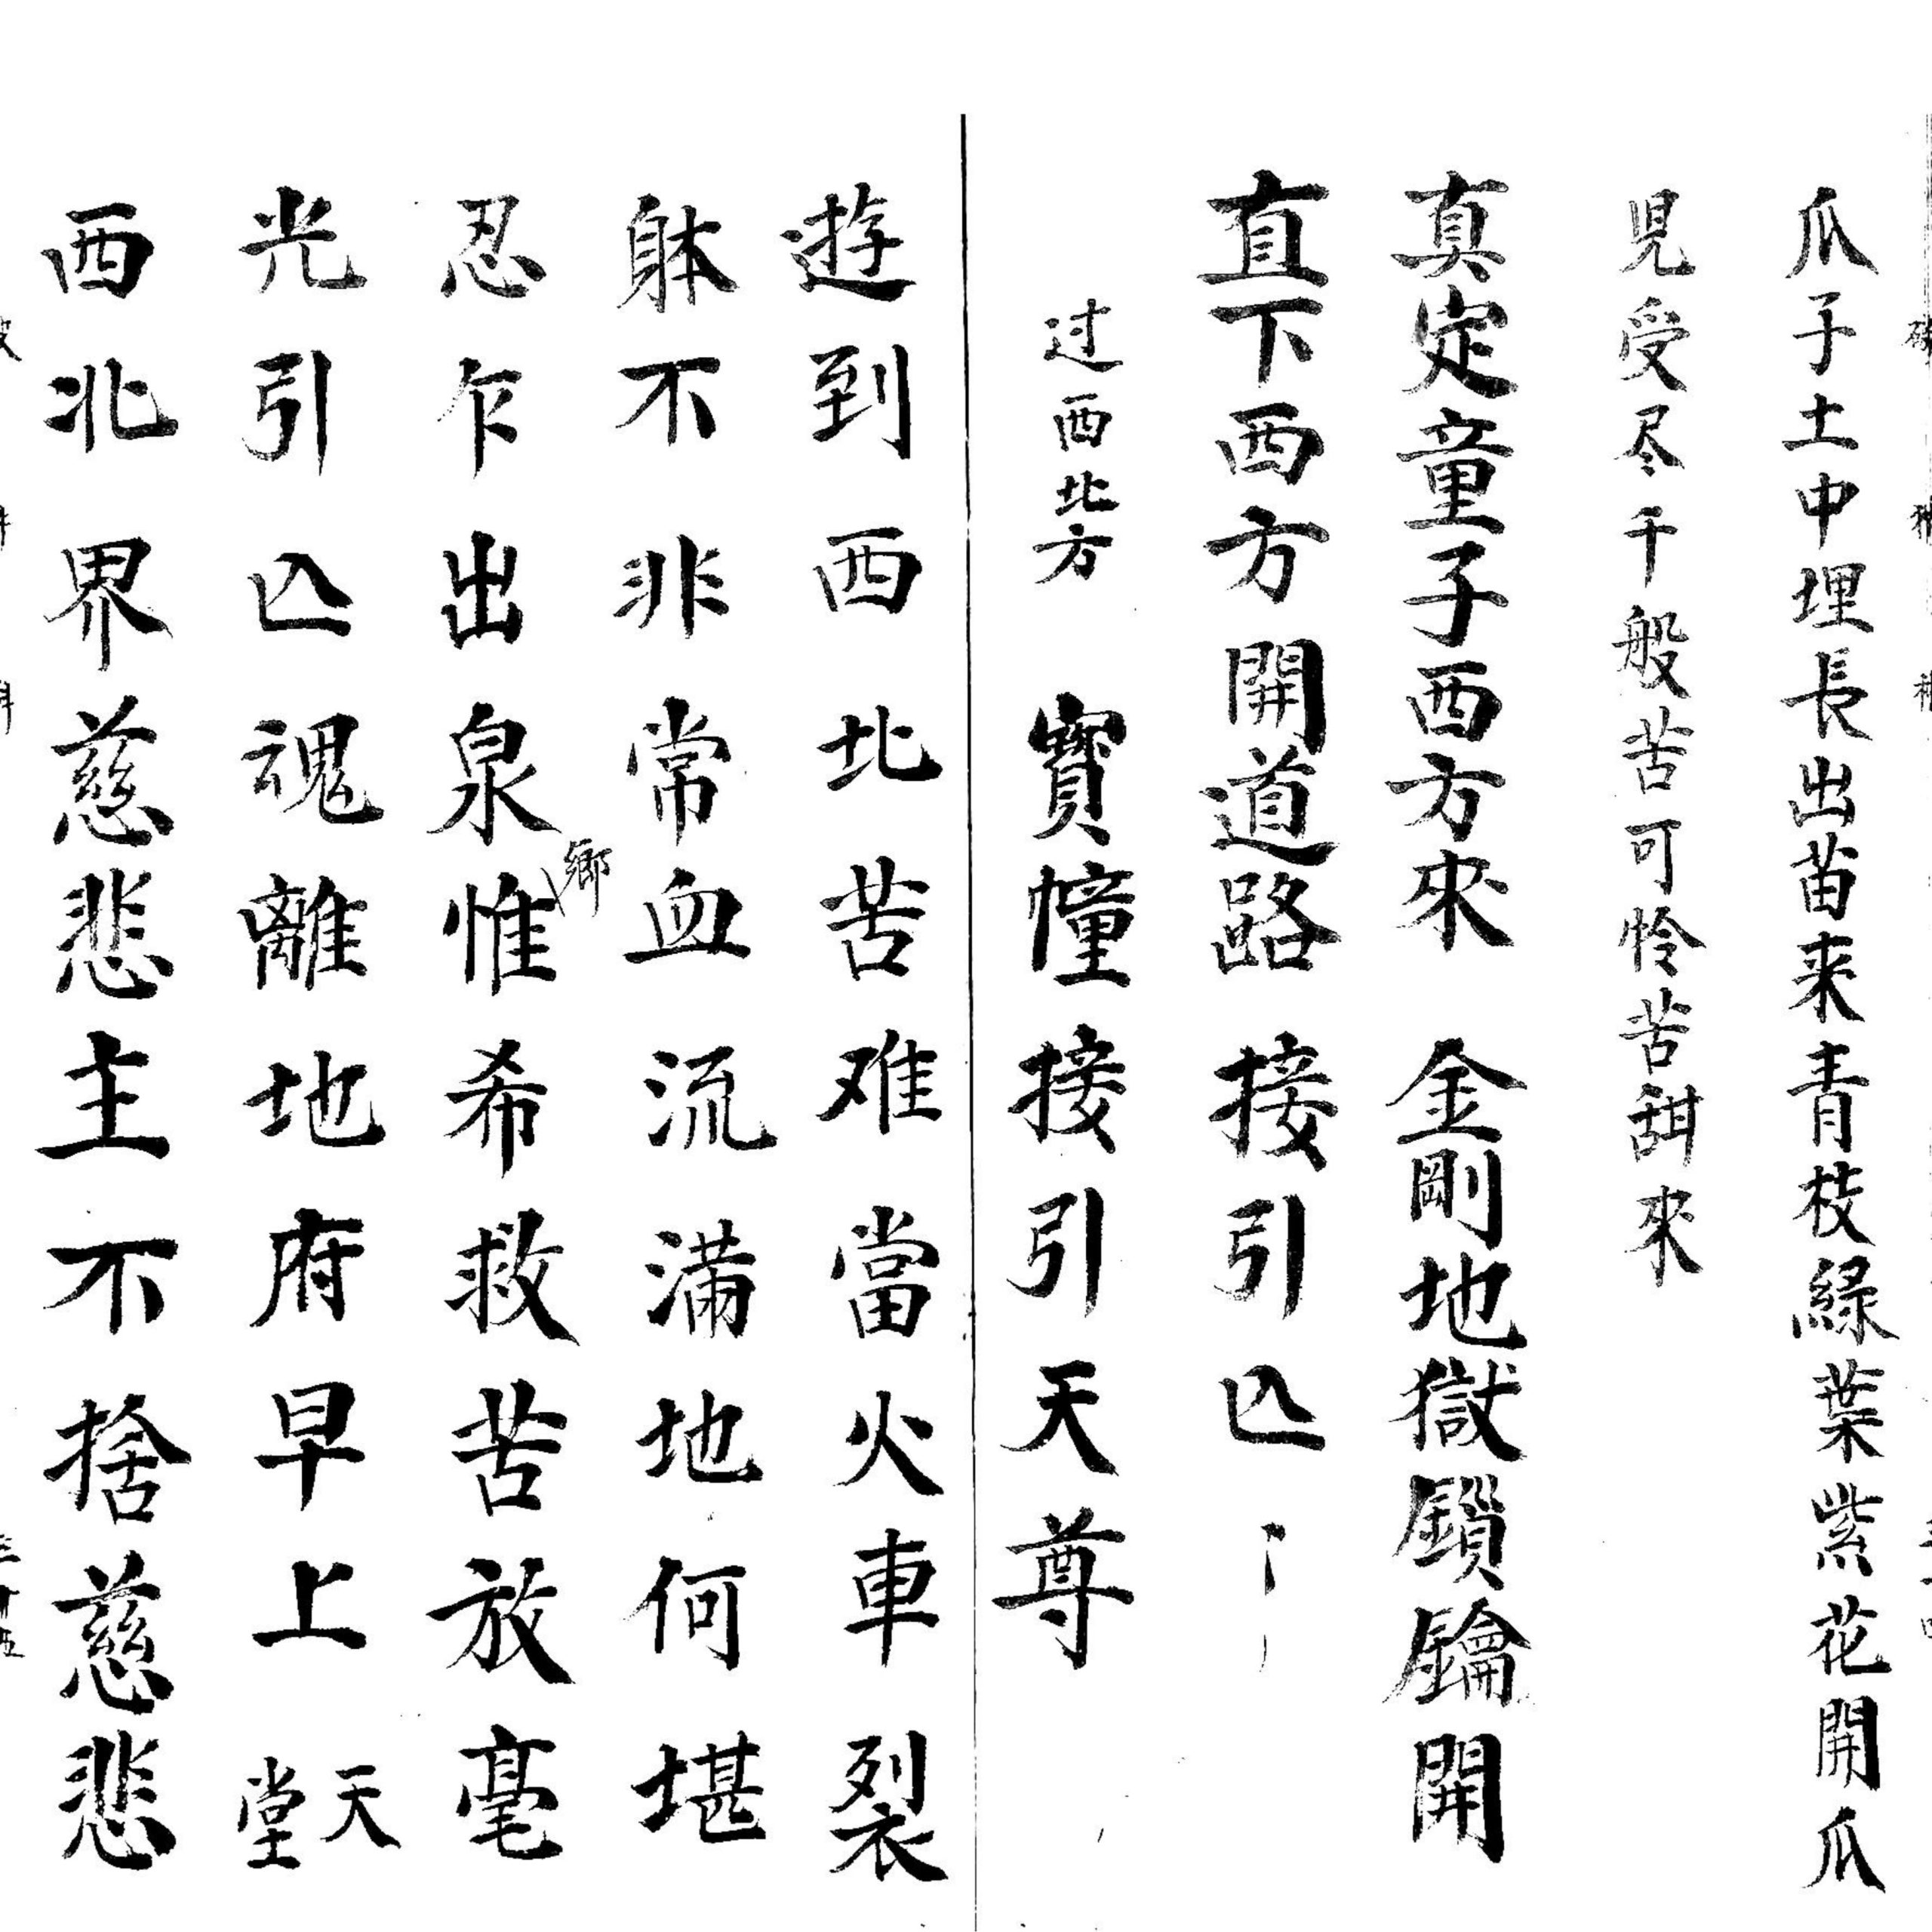 瓜子土中埋長出苗来青枝緑葉紫花開瓜
児受尽千般苦可怜苦甜來
真定童子西方來 金剛地獄鎖鑰開
直下西方開道路 接引亾
过西北方 寶幢接引天尊
遊到西北苦难當火車裂
躰不非常血流滿地何堪
忍乍出泉鄉惟希救苦放毫
光引亾魂離地府早上天堂
西北界慈悲主不捨慈悲